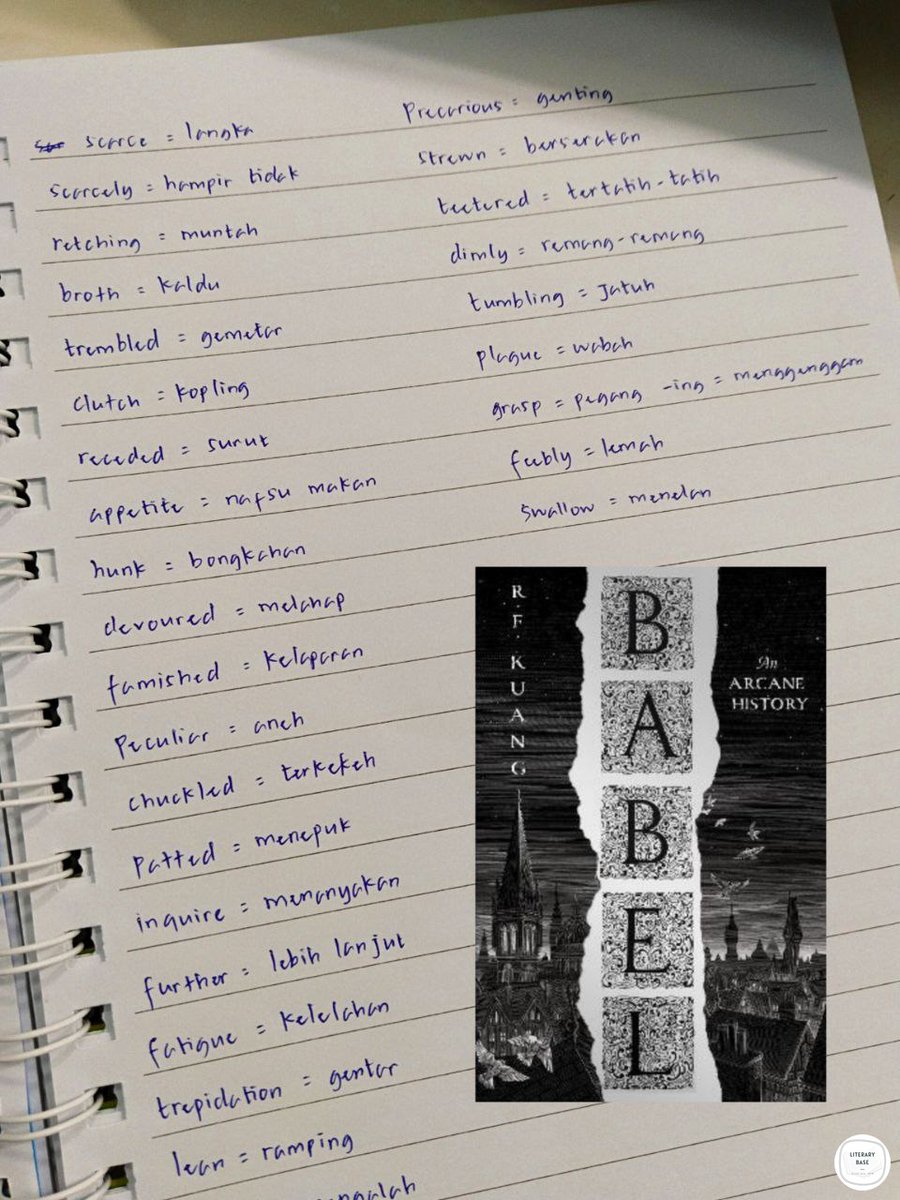 scarce = langka
scarcely = hampir tidak
retching = muntah
broth = kaldu
trembled = gemetar
clutch = kopling
receded = surut
appetite = nafsu makan
hunk = bongkahan
devoured = melahap
famished = kelaparan
Peculiar = aneh
chuckled = terkekeh
Patted = menepuk
inquire = menanyakan
further = lebih lanjut
fatigue = kelelahan
trepidation = gentar
lean = ramping
Precarious = genting
strewn = berserakan
teetered = tertatih-tatih
dimly = remang-remang
tumbling = jatuh
plague = wabah
grasp = pegang -ing = menggenggam
feebly = lemah
swallow = menelan
R. F. KUANG
BABEL
An
ARCANE
HISTORY
LITERARY
BASE